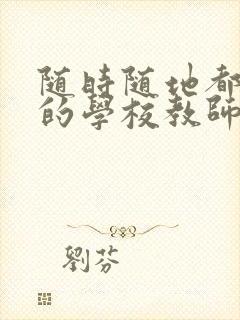 随時随地都
的學校教師
劉芬